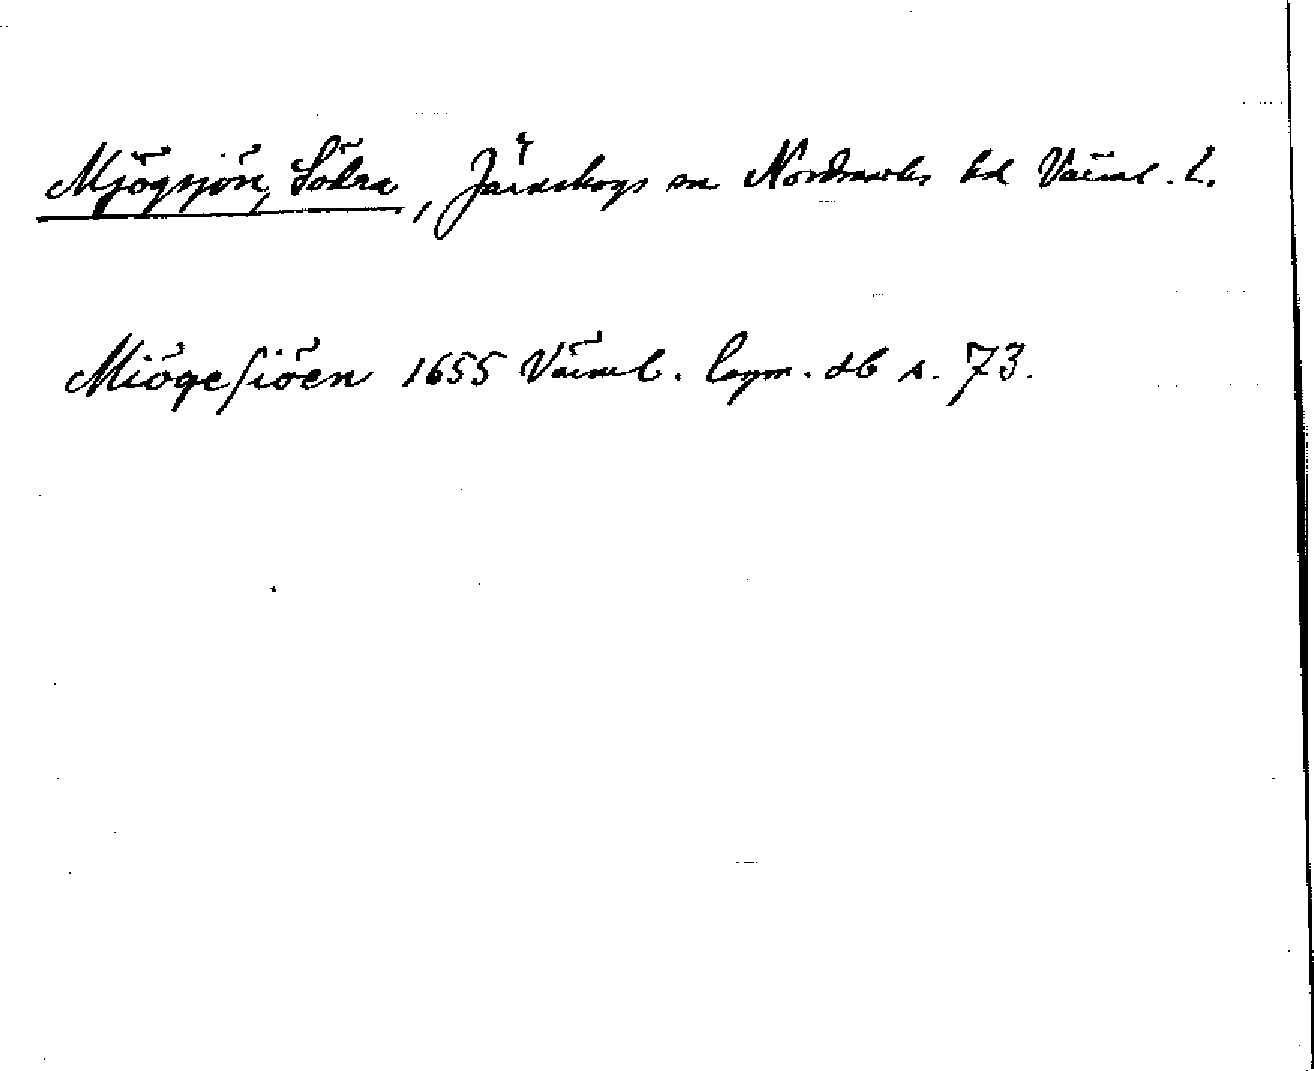 Mjögsjön, Södra, Järnskogs sn Nordmarks hd Värml. l.
Miögesiöen 1655 Värml. lagm. db s. 73.